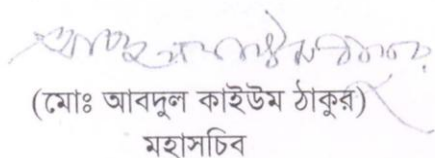 (মোঃ আবদুল কাইউম ঠাকুর)
মহাসচিব